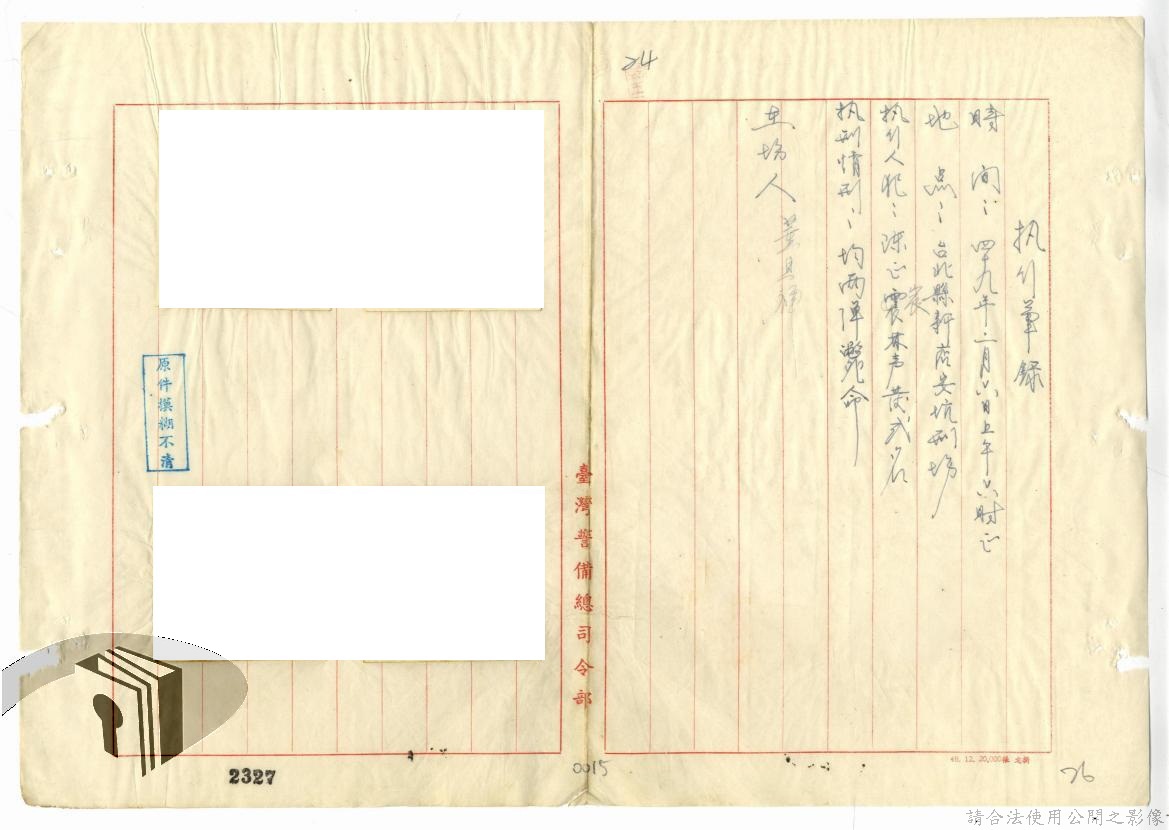 24
执行筆錄
時間：四十九年二月六日上午六時正
地点：台北縣新店安坑刑場
执行人犯：陈正宸震林声发弍名
执刑情形：均两弹斃命
在場人
臺灣警備總司令部
原件模糊不清
2327
0015
48. 12. 20,000張
26
請合法使用公開之影像